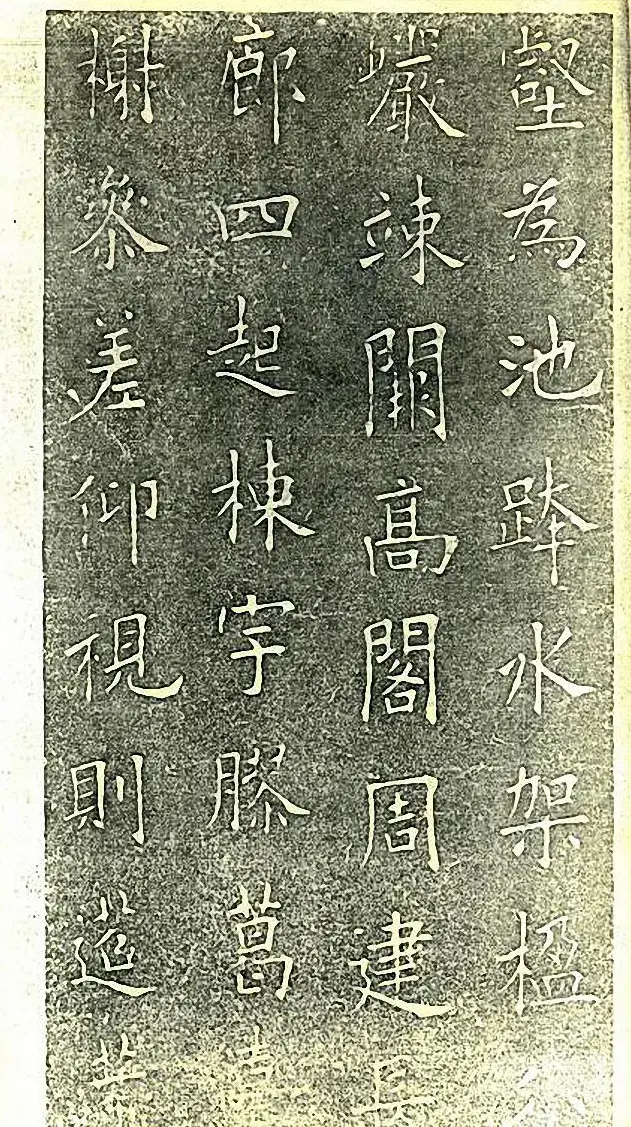 壑為池跨水架楹分
巖竦闕高閣周建長
廊四起棟宇膠葛臺
榭參差仰視則